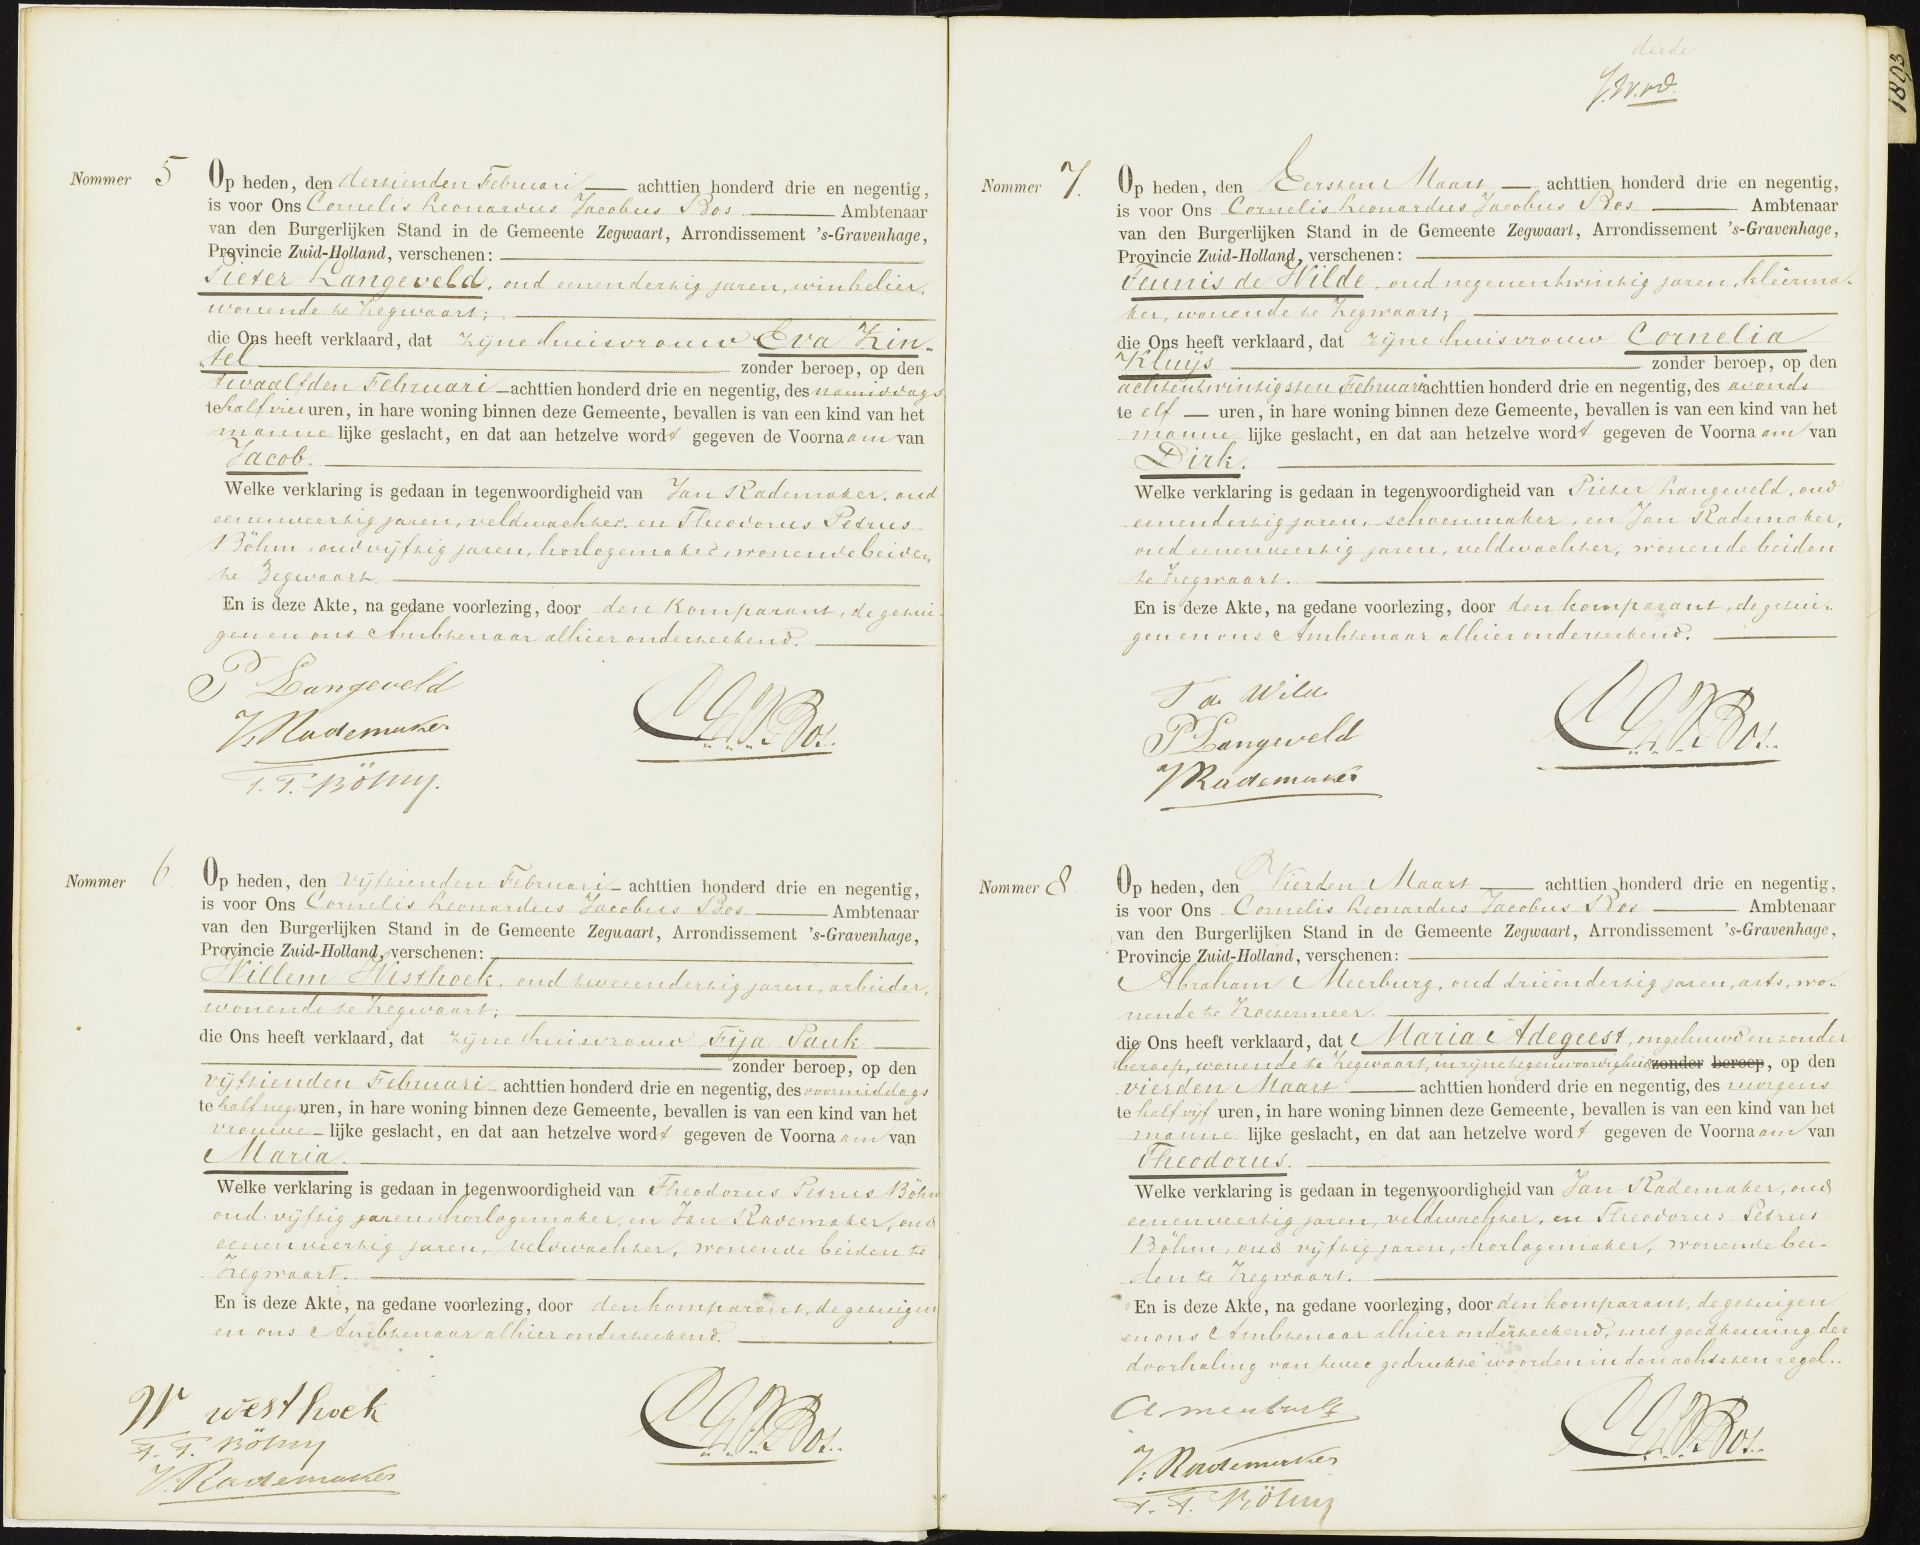 Nommer 5
Op heden, den dertienden Februari achttien honderd drie en negentig,
is voor Ons Cornelis Leonardus Jacobus Bos Ambtenaar
van den Burgerlijken Stand in de Gemeente Zegwaart, Arrondissement 's-Gravenhage,
Provincie Zuid-Holland, verschenen:
Pieter Langeveld, oud eenendertig jaren, winkelier,
wonende te Zegwaart;
die Ons heeft verklaard, dat zijne huisvrouw Eva Kin-
tel zonder beroep, op den
twaalfden Februari achttien honderd drie en negentig, des namiddags
te half vier uren, in hare woning binnen deze Gemeente, bevallen is van een kind van het
mannelijke geslacht, en dat aan hetzelve wordt gegeven de Voornaam van
Jacob.
Welke verklaring is gedaan in tegenwoordigheid van Jan Rademaker, oud
eenenveertig jaren, veldwachter, en Theodorus Petrus
Böhm, oud vijftig jaren, horlogemaker, wonende beiden
te Zegwaart.
En is deze Akte, na gedane voorlezing, door den Komparant, de getui-
gen en ons Ambtenaar alhier onderteekend.
P Langeveld
J. Rademaker
T. P. Böhm.
C.L.J. Bos.
Nommer 6.
Op heden, den vijftienden Februari achttien honderd drie en negentig,
is voor Ons Cornelis Leonardus Jacobus Bos Ambtenaar
van den Burgerlijken Stand in de Gemeente Zegwaart, Arrondissement 's-Gravenhage,
Provincie Zuid-Holland, verschenen:
Willem Westhoek, oud tweeendertig jaren, arbeider,
wonende te Zegwaart;
die Ons heeft verklaard, dat zijne huisvrouw Fija Pauk
zonder beroep, op den
vijftienden Februari achttien honderd drie en negentig, des voormiddags
te half negen uren, in hare woning binnen deze Gemeente, bevallen is van een kind van het
vrouwelijke geslacht, en dat aan hetzelve wordt gegeven de Voornaam van
Maria.
Welke verklaring is gedaan in tegenwoordigheid van Theodorus Petrus Böhm
oud vijftig jaren, horlogemaker, en Jan Rademaker, oud
eenenveertig jaren, veldwachter, wonende beiden te
Zegwaart.
En is deze Akte, na gedane voorlezing, door den komparant, de getuigen
en ons Ambtenaar alhier onderteekend.
W westhoek
T. P. Böhm
J. Rademaker
C.L.J. Bos.
derde
1893
Nommer 7.
Op heden, den Eersten Maart achttien honderd drie en negentig,
is voor Ons Cornelis Leonardus Jacobus Bos Ambtenaar
van den Burgerlijken Stand in de Gemeente Zegwaart, Arrondissement 's-Gravenhage,
Provincie Zuid-Holland, verschenen:
Teunis de Wilde, oud negenentwintig jaren, kleêrma-
ker, wonende te Zegwaart;
die Ons heeft verklaard, dat zijne huisvrouw Cornelia
Kluijs zonder beroep, op den
achtentwintigsten Februari achttien honderd drie en negentig, des avonds
te elf uren, in hare woning binnen deze Gemeente, bevallen is van een kind van het
mannelijke geslacht, en dat aan hetzelve wordt gegeven de Voornaam van
Dirk.
Welke verklaring is gedaan in tegenwoordigheid van Pieter Langeveld, oud
eenendertig jaren, schoenmaker, en Jan Rademaker,
oud eenenveertig jaren, veldwachter, wonende beiden
te Zegwaart.
En is deze Akte, na gedane voorlezing, door den komparant, de getui-
gen en ons Ambtenaar alhier onderteekend.
T de Wilde
P Langeveld
J Rademaker
C.L.J. Bos.
Nommer 8.
Op heden, den Vierden Maart achttien honderd drie en negentig,
is voor Ons Cornelis Leonardus Jacobus Bos Ambtenaar
van den Burgerlijken Stand in de Gemeente Zegwaart, Arrondissement 's-Gravenhage,
Provincie Zuid-Holland, verschenen:
Abraham Meerburg, oud drieëndertig jaren, arts, wo-
nende te Zoetermeer.
die Ons heeft verklaard, dat Maria Adegeest, ongehuwd en zonder
beroep, wonende te Zegwaart, in zijne tegenwoordigheid zonder beroep, op den
vierden Maart achttien honderd drie en negentig, des morgens
te half vijf uren, in hare woning binnen deze Gemeente, bevallen is van een kind van het
mannelijke geslacht, en dat aan hetzelve wordt gegeven de Voornaam van
Theodorus.
Welke verklaring is gedaan in tegenwoordigheid van Jan Rademaker, oud
eenenveertig jaren, veldwachter, en Theodorus Petrus
Böhm, oud vijftig jaren, horlogemaker, wonende bei-
den te Zegwaart.
En is deze Akte, na gedane voorlezing, door den komparant, de getuigen
en ons Ambtenaar alhier onderteekend, met goedkeuring der
doorhaling van twee gedrukte woorden in den achtsten regel.
A Meerburg
J. Rademaker
T. P. Böhm
C.L.J. Bos.